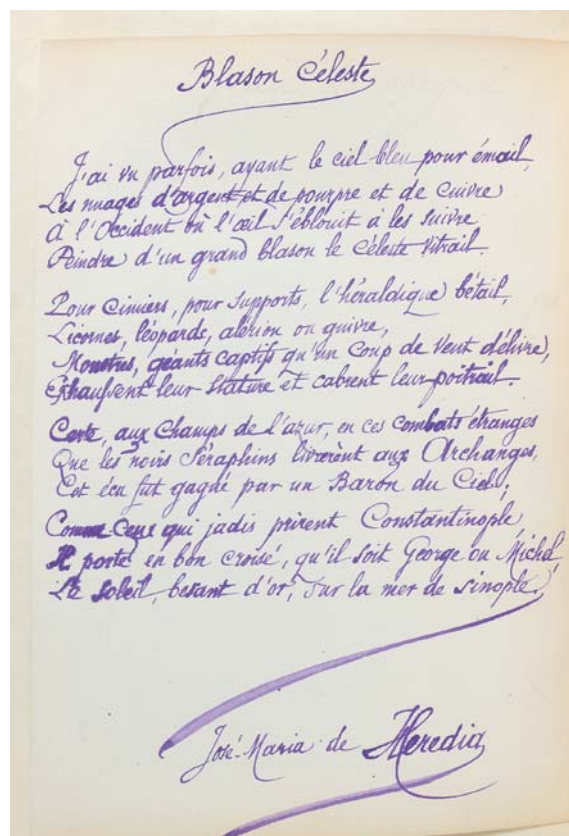 Blason Céleste
J'ai vu parfois, ayant le ciel bleu pour émail,
Les nuages d'argent et de pourpre et de cuivre
À l'Occident où l'œil s'éblouit à les suivre
Peindre d'un grand blason le céleste vitrail.
Pour cimiers, pour supports, l'héraldique bétail,
Licornes, léopards, alérion ou guivre,
Monstres, géants captifs qu'un coup de vent délivre,
Exhaussent leur stature et cabrent leur poitrail.
Certe, aux champs de l'azur, en ces combats étranges
Que les noirs Séraphins livrèrent aux Archanges,
Cet écu fut gagné par un Baron du Ciel;
Comme ceux qui jadis prirent Constantinople
Il porte, en bon croisé, qu'il soit George ou Michel,
Le soleil, besant d'or, sur la mer de sinople.
José-Maria de Heredia